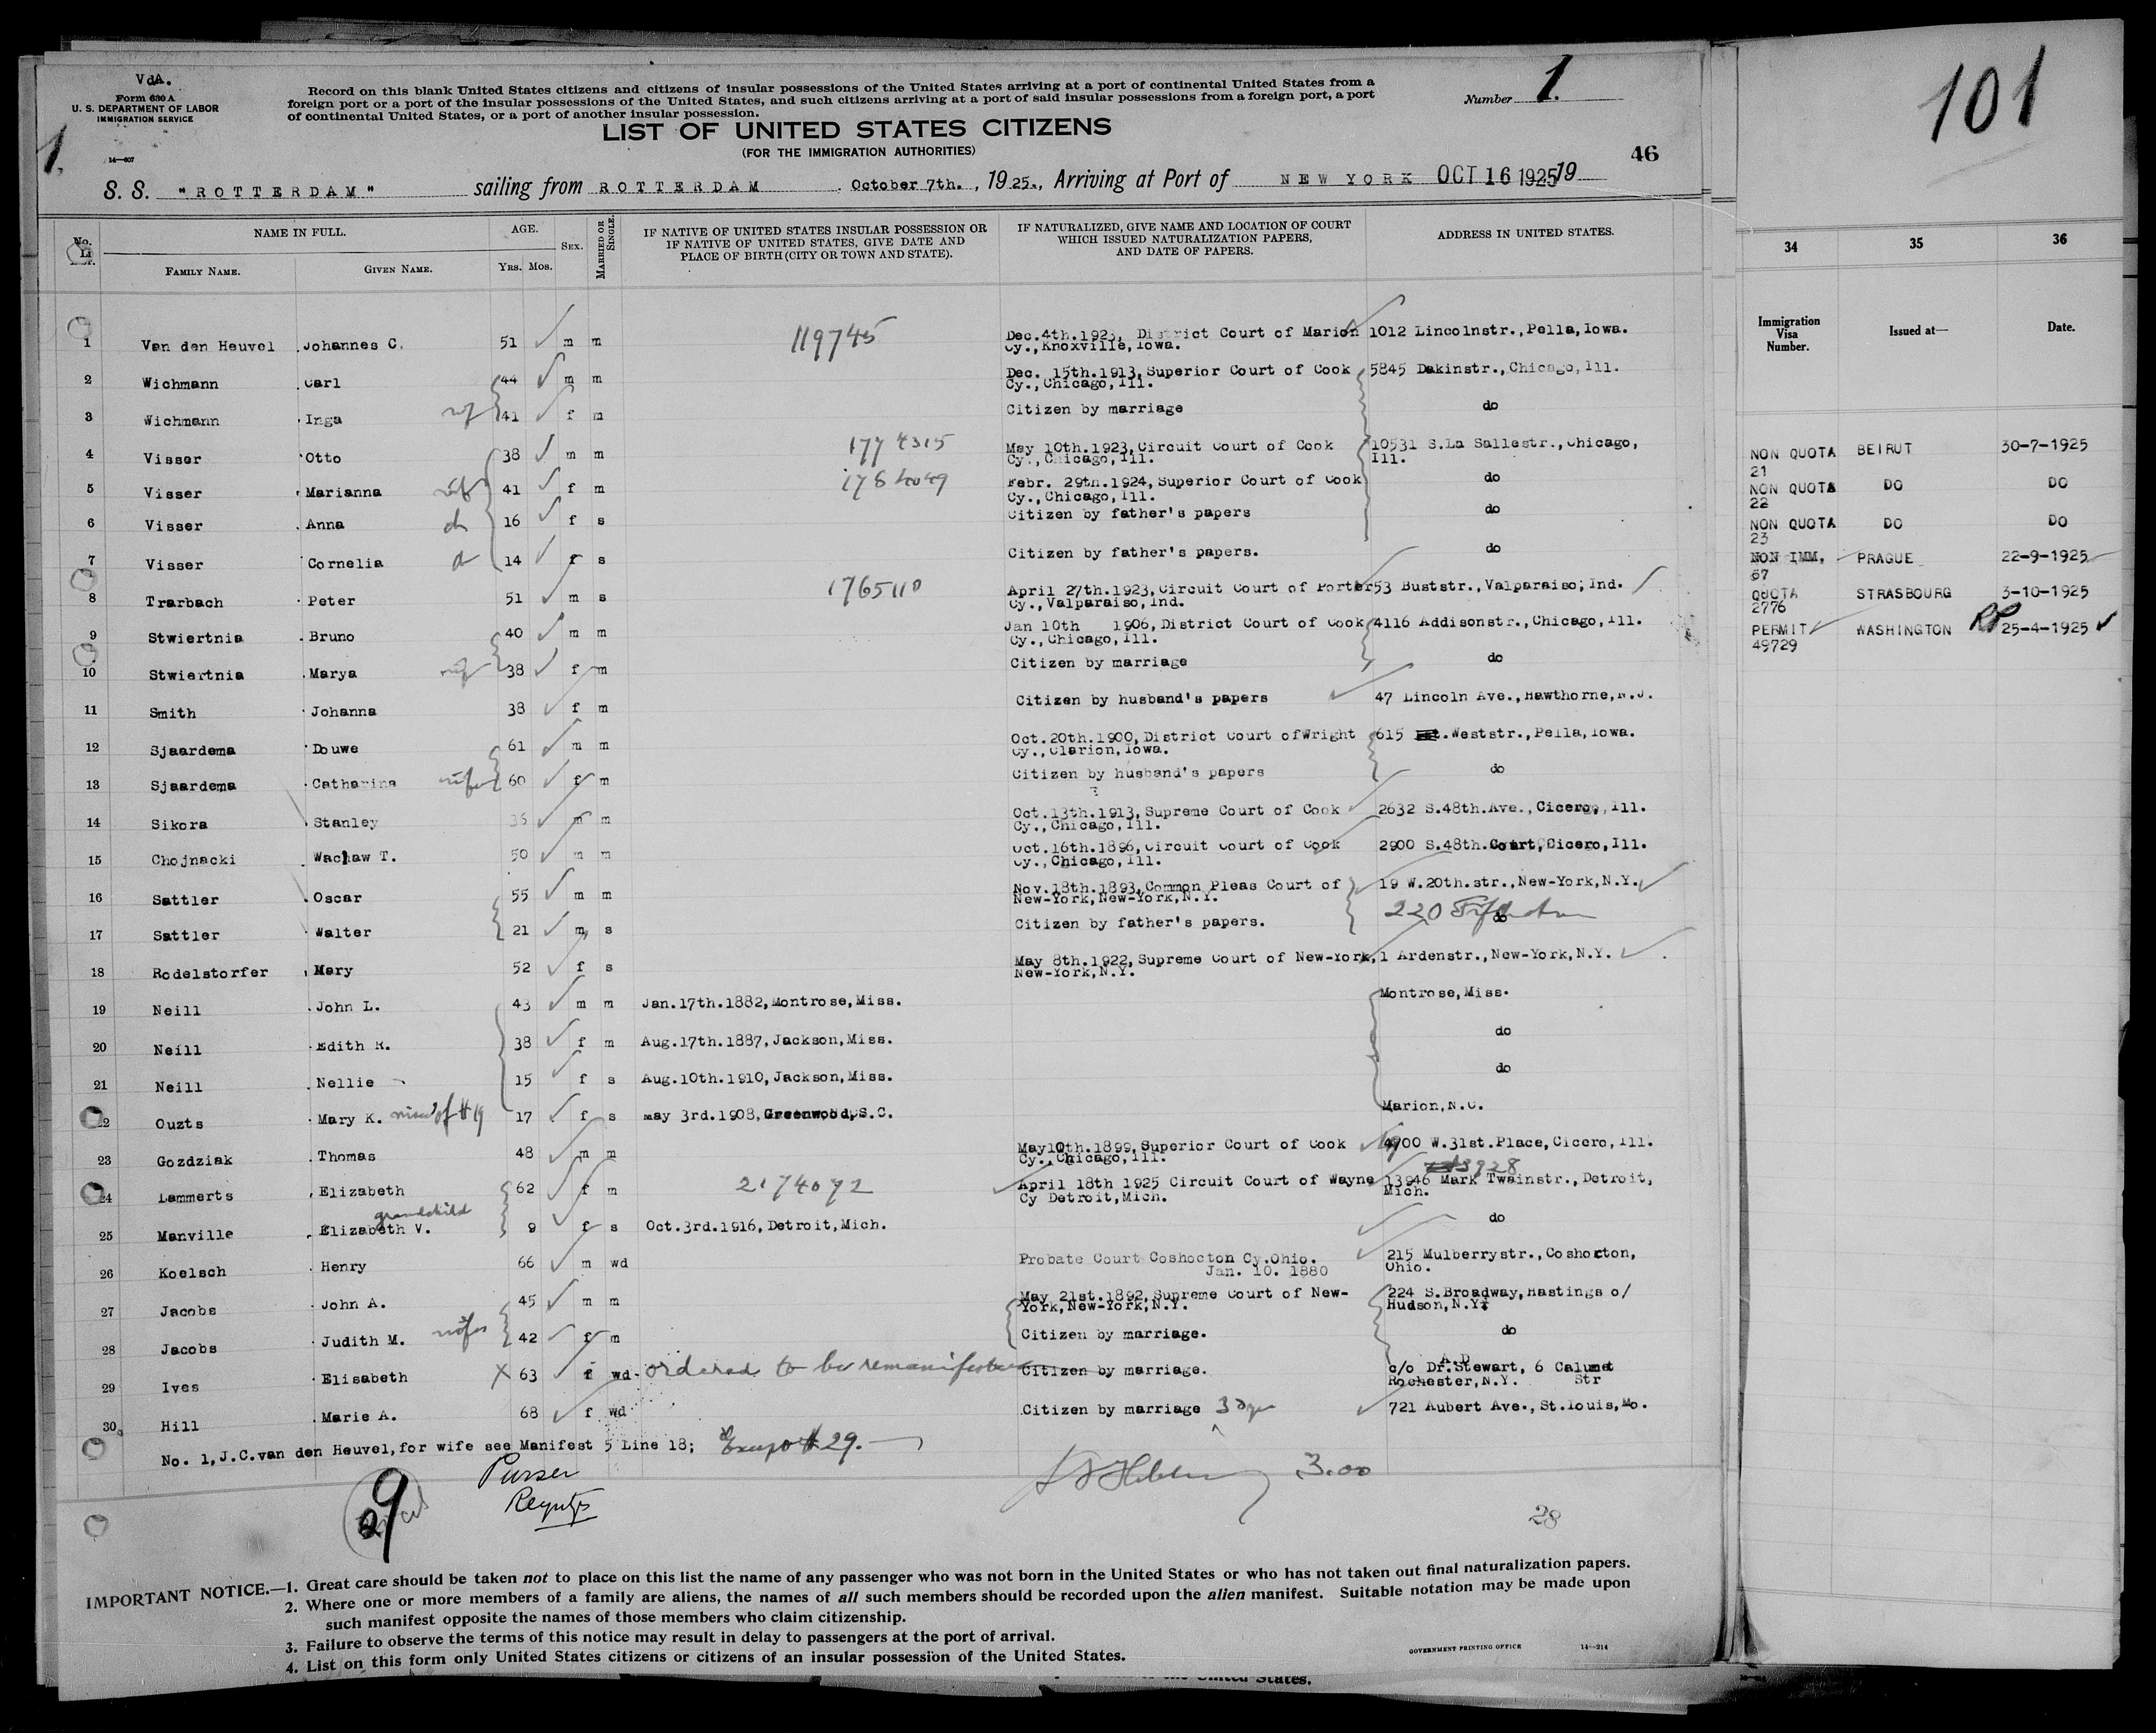 VdA.
Form 630 A
U. S. DEPARTMENT OF LABOR
IMMIGRATION SERVICE
14—607
1.
Record on this blank United States citizens and citizens of insular possessions of the United States arriving at a port of continental United States from a
foreign port or a port of the insular possessions of the United States, and such citizens arriving at a port of said insular possessions from a foreign port, a port
of continental United States, or a port of another insular possession.
Number 1.
LIST OF UNITED STATES CITIZENS
(FOR THE IMMIGRATION AUTHORITIES)
46
S. S. "ROTTERDAM" sailing from ROTTERDAM October 7th., 1925., Arriving at Port of NEW YORK OCT 16 1925 19
No. NAME IN FULL. AGE. SEX. MARRIED OR SINGLE. IF NATIVE OF UNITED STATES INSULAR POSSESSION OR IF NATIVE OF UNITED STATES, GIVE DATE AND PLACE OF BIRTH (CITY OR TOWN AND STATE). IF NATURALIZED, GIVE NAME AND LOCATION OF COURT WHICH ISSUED NATURALIZATION PAPERS, AND DATE OF PAPERS. ADDRESS IN UNITED STATES.
FAMILY NAME. GIVEN NAME. YRS. MOS.
1 Van den Heuvel Johannes C. 51 m m 119745 Dec.4th.1923, District Court of Marion Cy.,Knoxville,Iowa. 1012 Lincolnstr.,Pella,Iowa.
2 Wichmann Carl 44 m m Dec. 15th.1913,Superior Court of Cook Cy.,Chicago,Ill. 5845 Dakinstr.,Chicago,Ill.
3 Wichmann Inga 41 f m Citizen by marriage do
4 Visser Otto 38 m m 1774315 May 10th.1923,Circuit Court of Cook Cy.,Chicago,Ill. 10531 S.La Sallestr.,Chicago, Ill.
5 Visser Marianna 41 f m Febr. 29th.1924,Superior Court of Cook Cy.,Chicago,Ill. do
6 Visser Anna 16 f s Citizen by father's papers do
7 Visser Cornelia 14 f s Citizen by father's papers. do
8 Trarbach Peter 51 m s 1765110 April 27th.1923,Circuit Court of Porter Cy.,Valparaiso,Ind. 53 Buststr.,Valparaiso,Ind.
9 Stwiertnia Bruno 40 m m Jan 10th 1906,District Court of Cook Cy.,Chicago,Ill. 4116 Addisonstr.,Chicago,Ill.
10 Stwiertnia Marya 38 f m Citizen by marriage do
11 Smith Johanna 38 f m Citizen by husband's papers 47 Lincoln Ave.,Hawthorne,N.J.
12 Sjaardema Douwe 61 m m Oct.20th.1900,District Court ofWright Cy.,Clarion,Iowa. 615 Weststr.,Pella,Iowa.
13 Sjaardema Catharina wife 60 f m Citizen by husband's papers do
14 Sikora Stanley 36 m m Oct.13th.1913,Supreme Court of Cook Cy.,Chicago,Ill. 2632 S.48th.Ave.,Cicero,Ill.
15 Chojnacki Waclaw T. 50 m m Oct.16th.1896,Circuit Court of Cook Cy.,Chicago,Ill. 2900 S.48th.Court,Cicero,Ill.
16 Sattler Oscar 55 m m Nov.18th.1893,Common Pleas Court of New-York,New-York,N.Y. 19 W.20th.str.,New-York,N.Y.
220
17 Sattler Walter 21 m s Citizen by father's papers. do
18 Rodelstorfer Mary 52 f s May 8th.1922,Supreme Court of New-York, New-York,N.Y. 1 Ardenstr.,New-York,N.Y.
19 Neill John L. 43 m m Jan.17th.1882,Montrose,Miss. Montrose,Miss.
20 Neill Edith R. 38 f m Aug.17th.1887,Jackson,Miss. do
21 Neill Nellie 15 f s Aug.10th.1910,Jackson,Miss. do
22 Ouzts Mary K. niece of #19 17 f s may 3rd.1908,Greenwood,S.C. Marion,N.C.
23 Gozdziak Thomas 48 m m May10th.1899,Superior Court of Cook Cy.,Chicago,Ill. 4900 W.31st.Place,Cicero,Ill.
24 Lammerts Elizabeth 62 f m 2174072 April 18th 1925 Circuit Court of Wayne Cy Detroit,Mich. 13946 Mark Twainstr.,Detroit, Mich.
25 Manville Elizabeth V. grandchild 9 f s Oct.3rd.1916,Detroit,Mich. do
26 Koelsch Henry 66 m wd Probate Court Coshocton Cy.Ohio. Jan. 10. 1880 215 Mulberrystr.,Coshocton, Ohio.
27 Jacobs John A. 45 m m May 21st.1892,Supreme Court of New-York,New-York,N.Y. 224 S.Broadway,Hastings o/ Hudson,N.Y.
28 Jacobs Judith M. wife 42 f m Citizen by marriage. do
29 Ives Elisabeth X 63 f wd ordered to be remanifested Citizen by marriage. c/o Dr.A.D.Stewart, 6 Calumet Str Rochester,N.Y.
30 Hill Marie A. 68 f wd Citizen by marriage 721 Aubert Ave.,St.louis,Mo.
No. 1,J.C.van den Heuvel,for wife see Manifest 5 Line 18; Except #29.
Purser
3.00
9
28
IMPORTANT NOTICE.—1. Great care should be taken not to place on this list the name of any passenger who was not born in the United States or who has not taken out final naturalization papers.
2. Where one or more members of a family are aliens, the names of all such members should be recorded upon the alien manifest. Suitable notation may be made upon
such manifest opposite the names of those members who claim citizenship.
3. Failure to observe the terms of this notice may result in delay to passengers at the port of arrival.
4. List on this form only United States citizens or citizens of an insular possession of the United States.
GOVERNMENT PRINTING OFFICE 14—214
United States.
101
34 35 36
Immigration Visa Number. Issued at— Date.
NON QUOTA 21 BEIRUT 30-7-1925
NON QUOTA 22 DO DO
NON QUOTA 23 DO DO
NON IMM. 67 PRAGUE 22-9-1925
QUOTA 2776 STRASBOURG 3-10-1925
PERMIT 49729 WASHINGTON 25-4-1925